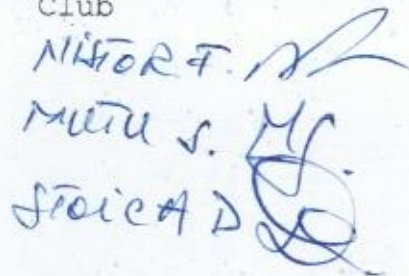 Club
NISTOR F.
MUTU S.
STOICA D